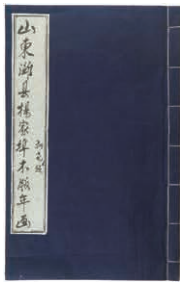 山東濰县楊家埠木版年画